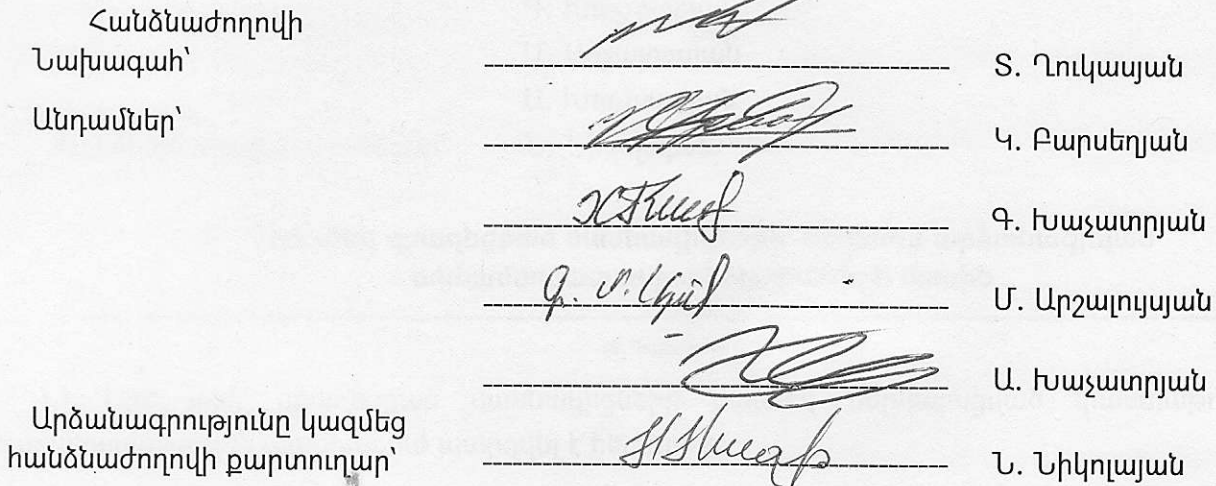 Հանձնաժողովի
Նախագահ՝ Տ. Ղուկասյան
Անդամներ՝ Կ. Բարսեղյան
Գ. Խաչատրյան
Մ. Արշալույսյան
Ա. Խաչատրյան
Արձանագրությունը կազմեց
հանձնաժողովի քարտուղար՝ Ն. Նիկոլայան